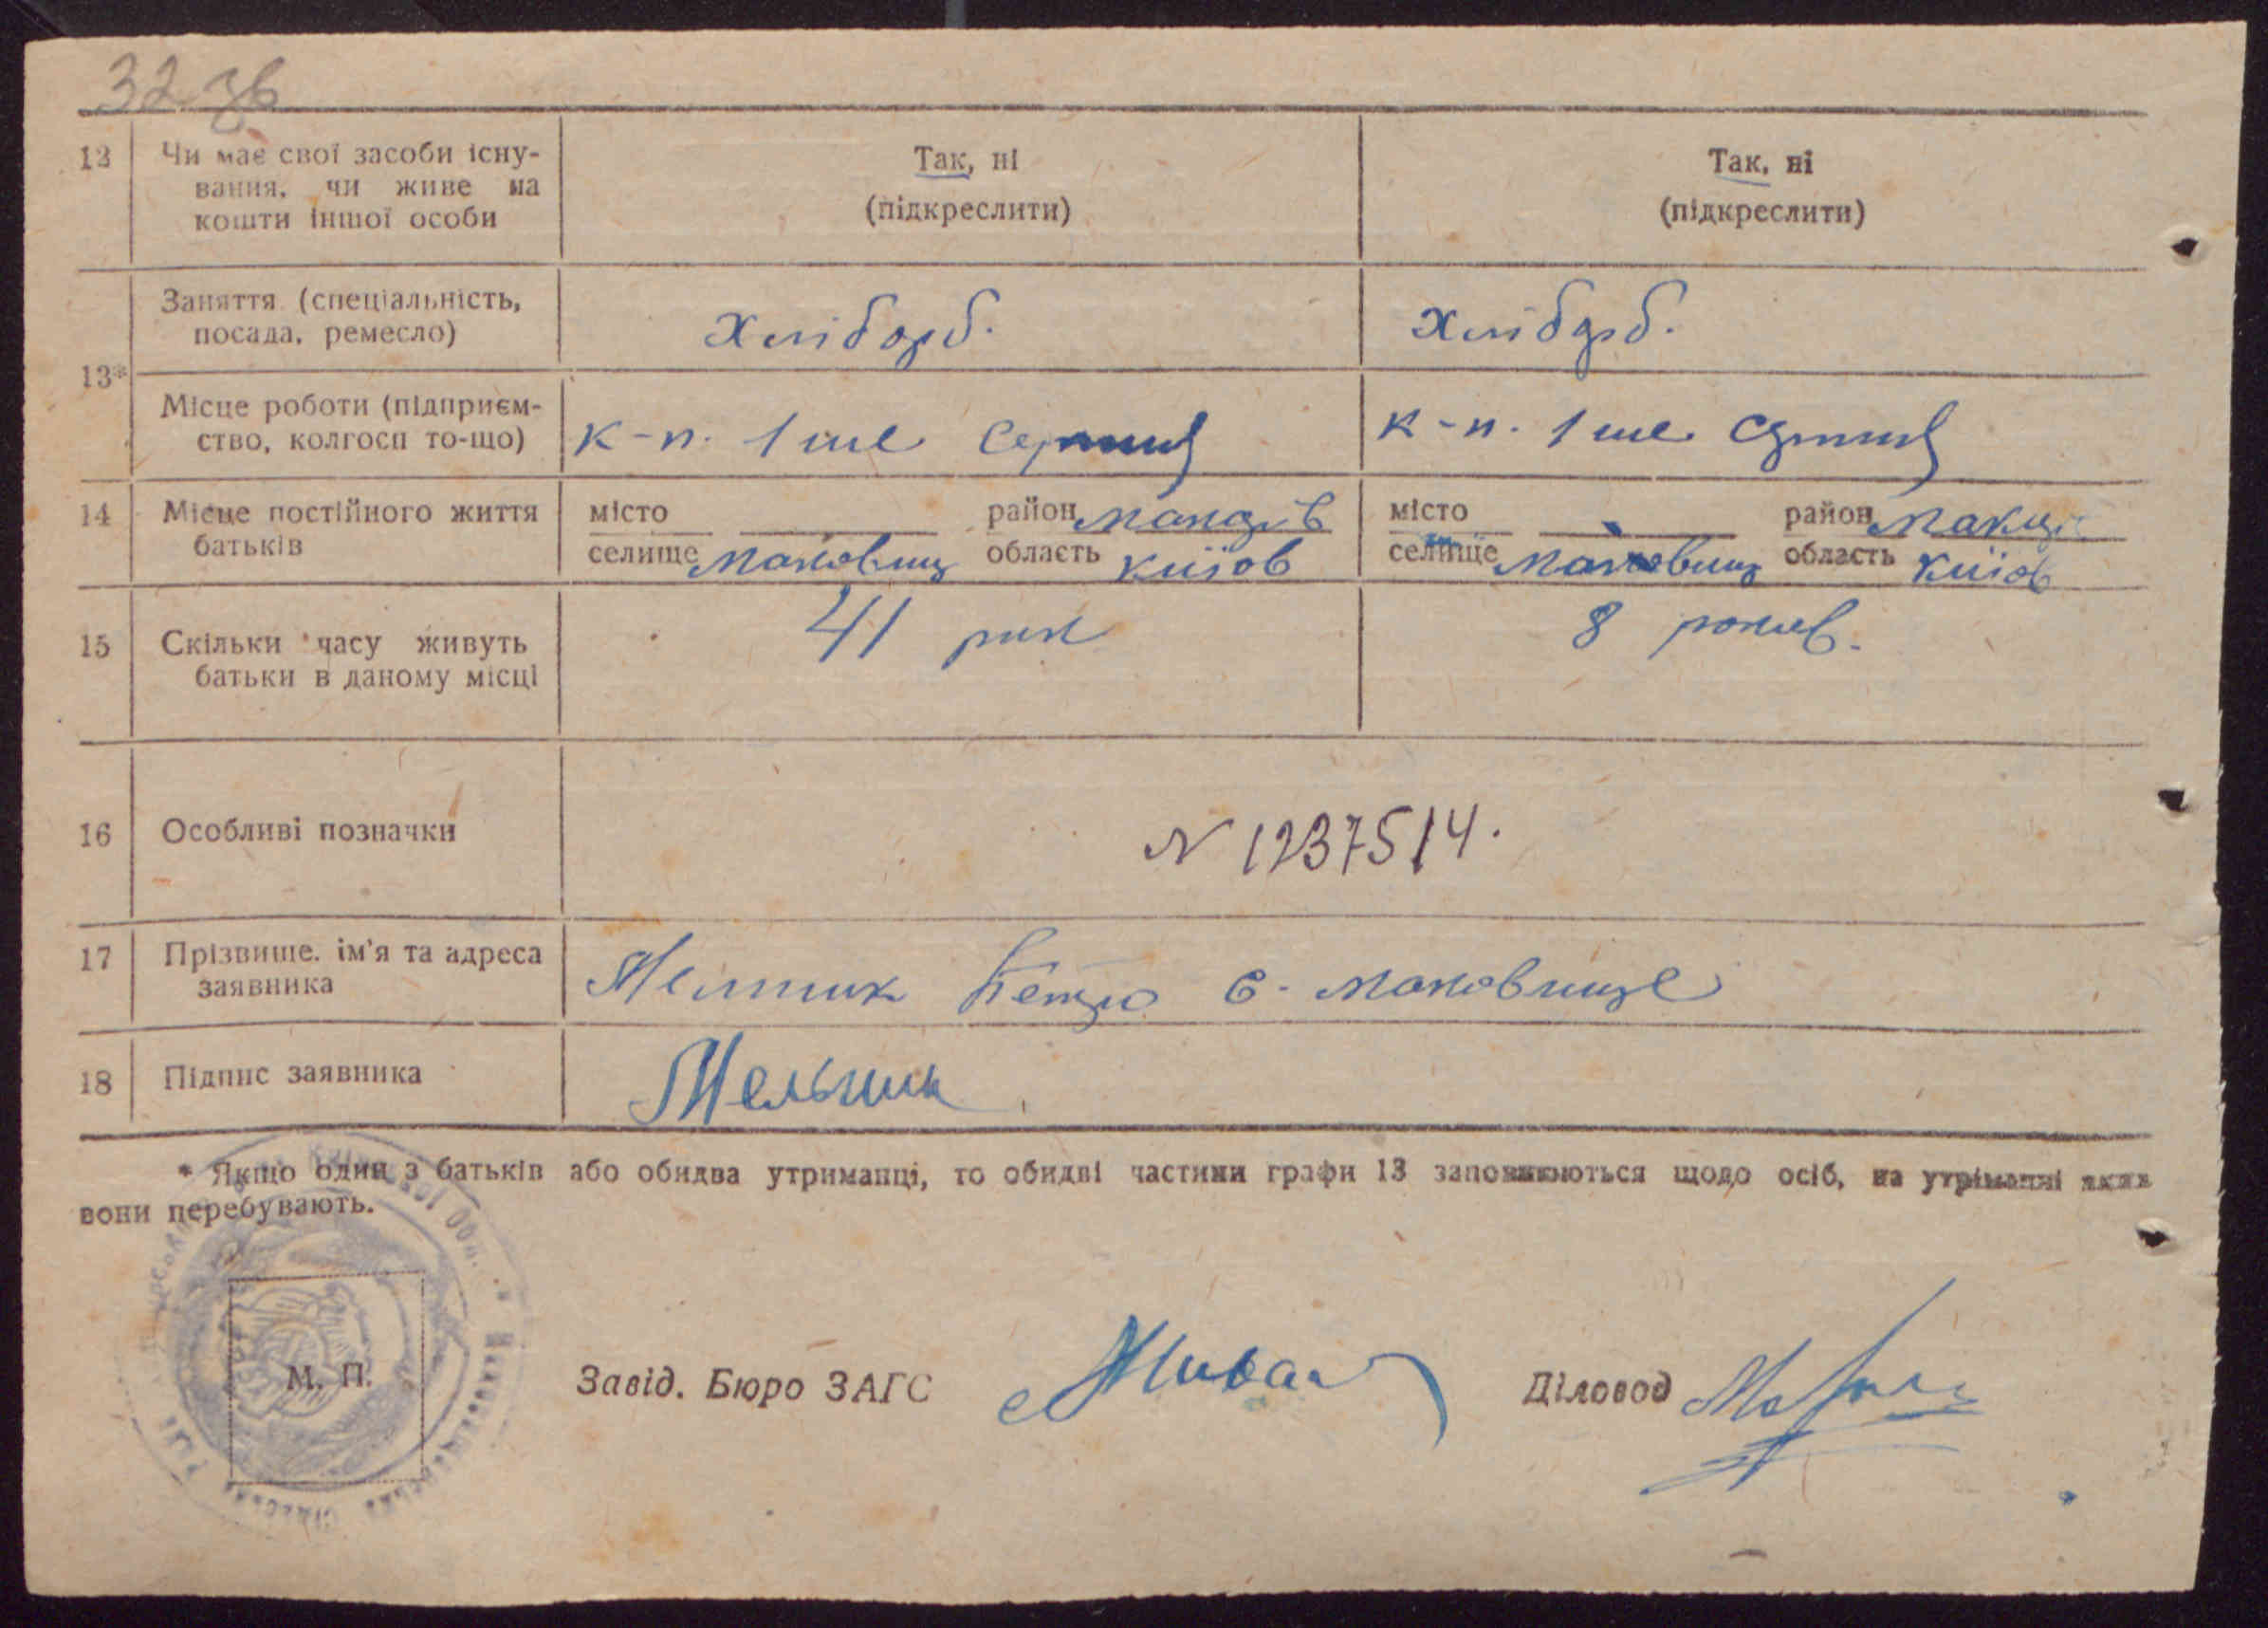 32 зв
12 Чи має свої засоби існу-
вання, чи живе на
кошти іншої особи
Так, ні
(підкреслити)
Так, ні
(підкреслити)
13*
Заняття (спеціальність,
посада, ремесло)
Хлібороб.
Хлібороб.
Місце роботи (підприєм-
ство, колгосп то-що)
к-п. 1 ше Серпня
к-п. 1 ше Серпня
14 Місце постійного життя
батьків
місто район Макарів
селище Маковищ область Київ
місто район
селище Маковищ область Київ
15 Скільки часу живуть
батьки в даному місці
41 рік
8 років.
16 Особливі позначки
N 1237514.
17 Прізвище, ім'я та адреса
заявника
Мельник Петро с. Маковище
18 Підпис заявника
Мельник
* Якщо один з батьків або обидва утриманці, то обидві частини графи 13 заповнюються щодо осіб, на утриманні яких
вони перебувають.
М. П.
Завід. Бюро ЗАГС
Діловод